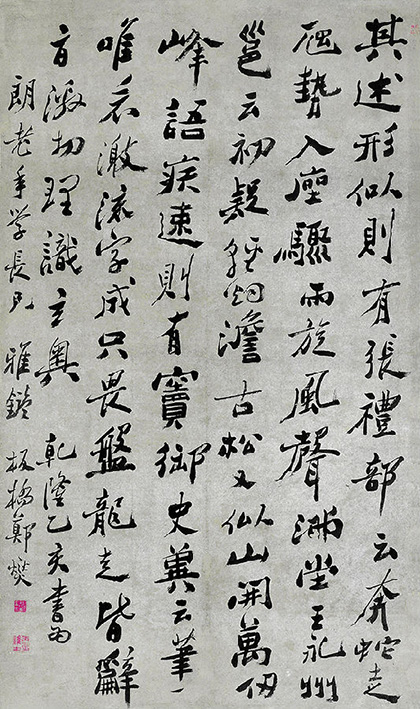 其述形似則有張禮部云奔蛇走
虺勢入座驟雨旋風聲滿堂王永州
邕云初疑輕煙澹古松又似山開萬仞
峰語疾速則有竇御史冀云筆下
唯看激流字成只畏盤龍走皆辭
旨激切理識玄奧 乾隆乙亥書為
朗老年学長兄 雅鑒 板橋鄭燮